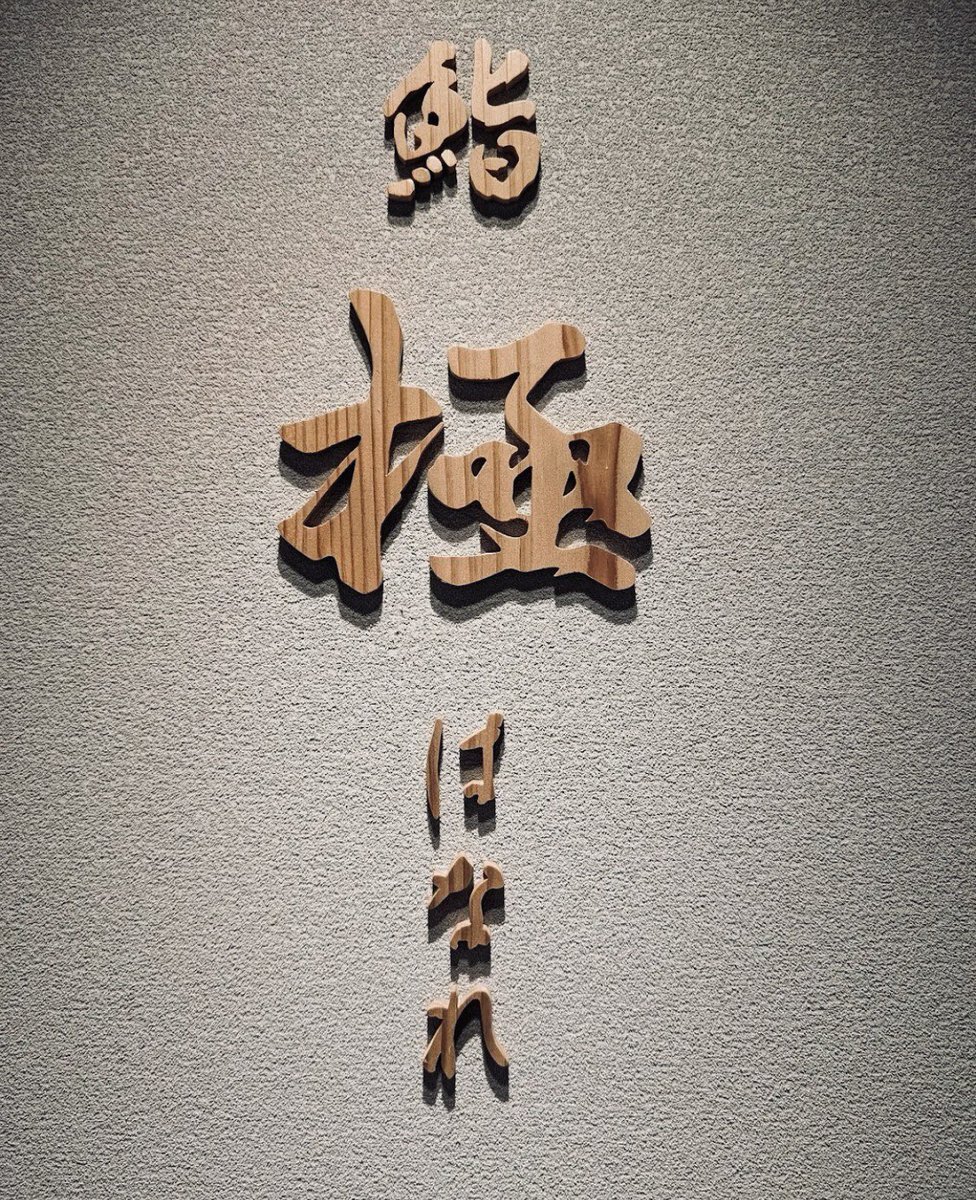 鮨
極
はなれ